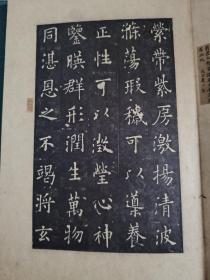 縈帶紫房激揚清波
滌蕩瑕穢可以導養
正性可以澂瑩心神
鑒暎群形潤生萬物
同湛恩之不竭將玄